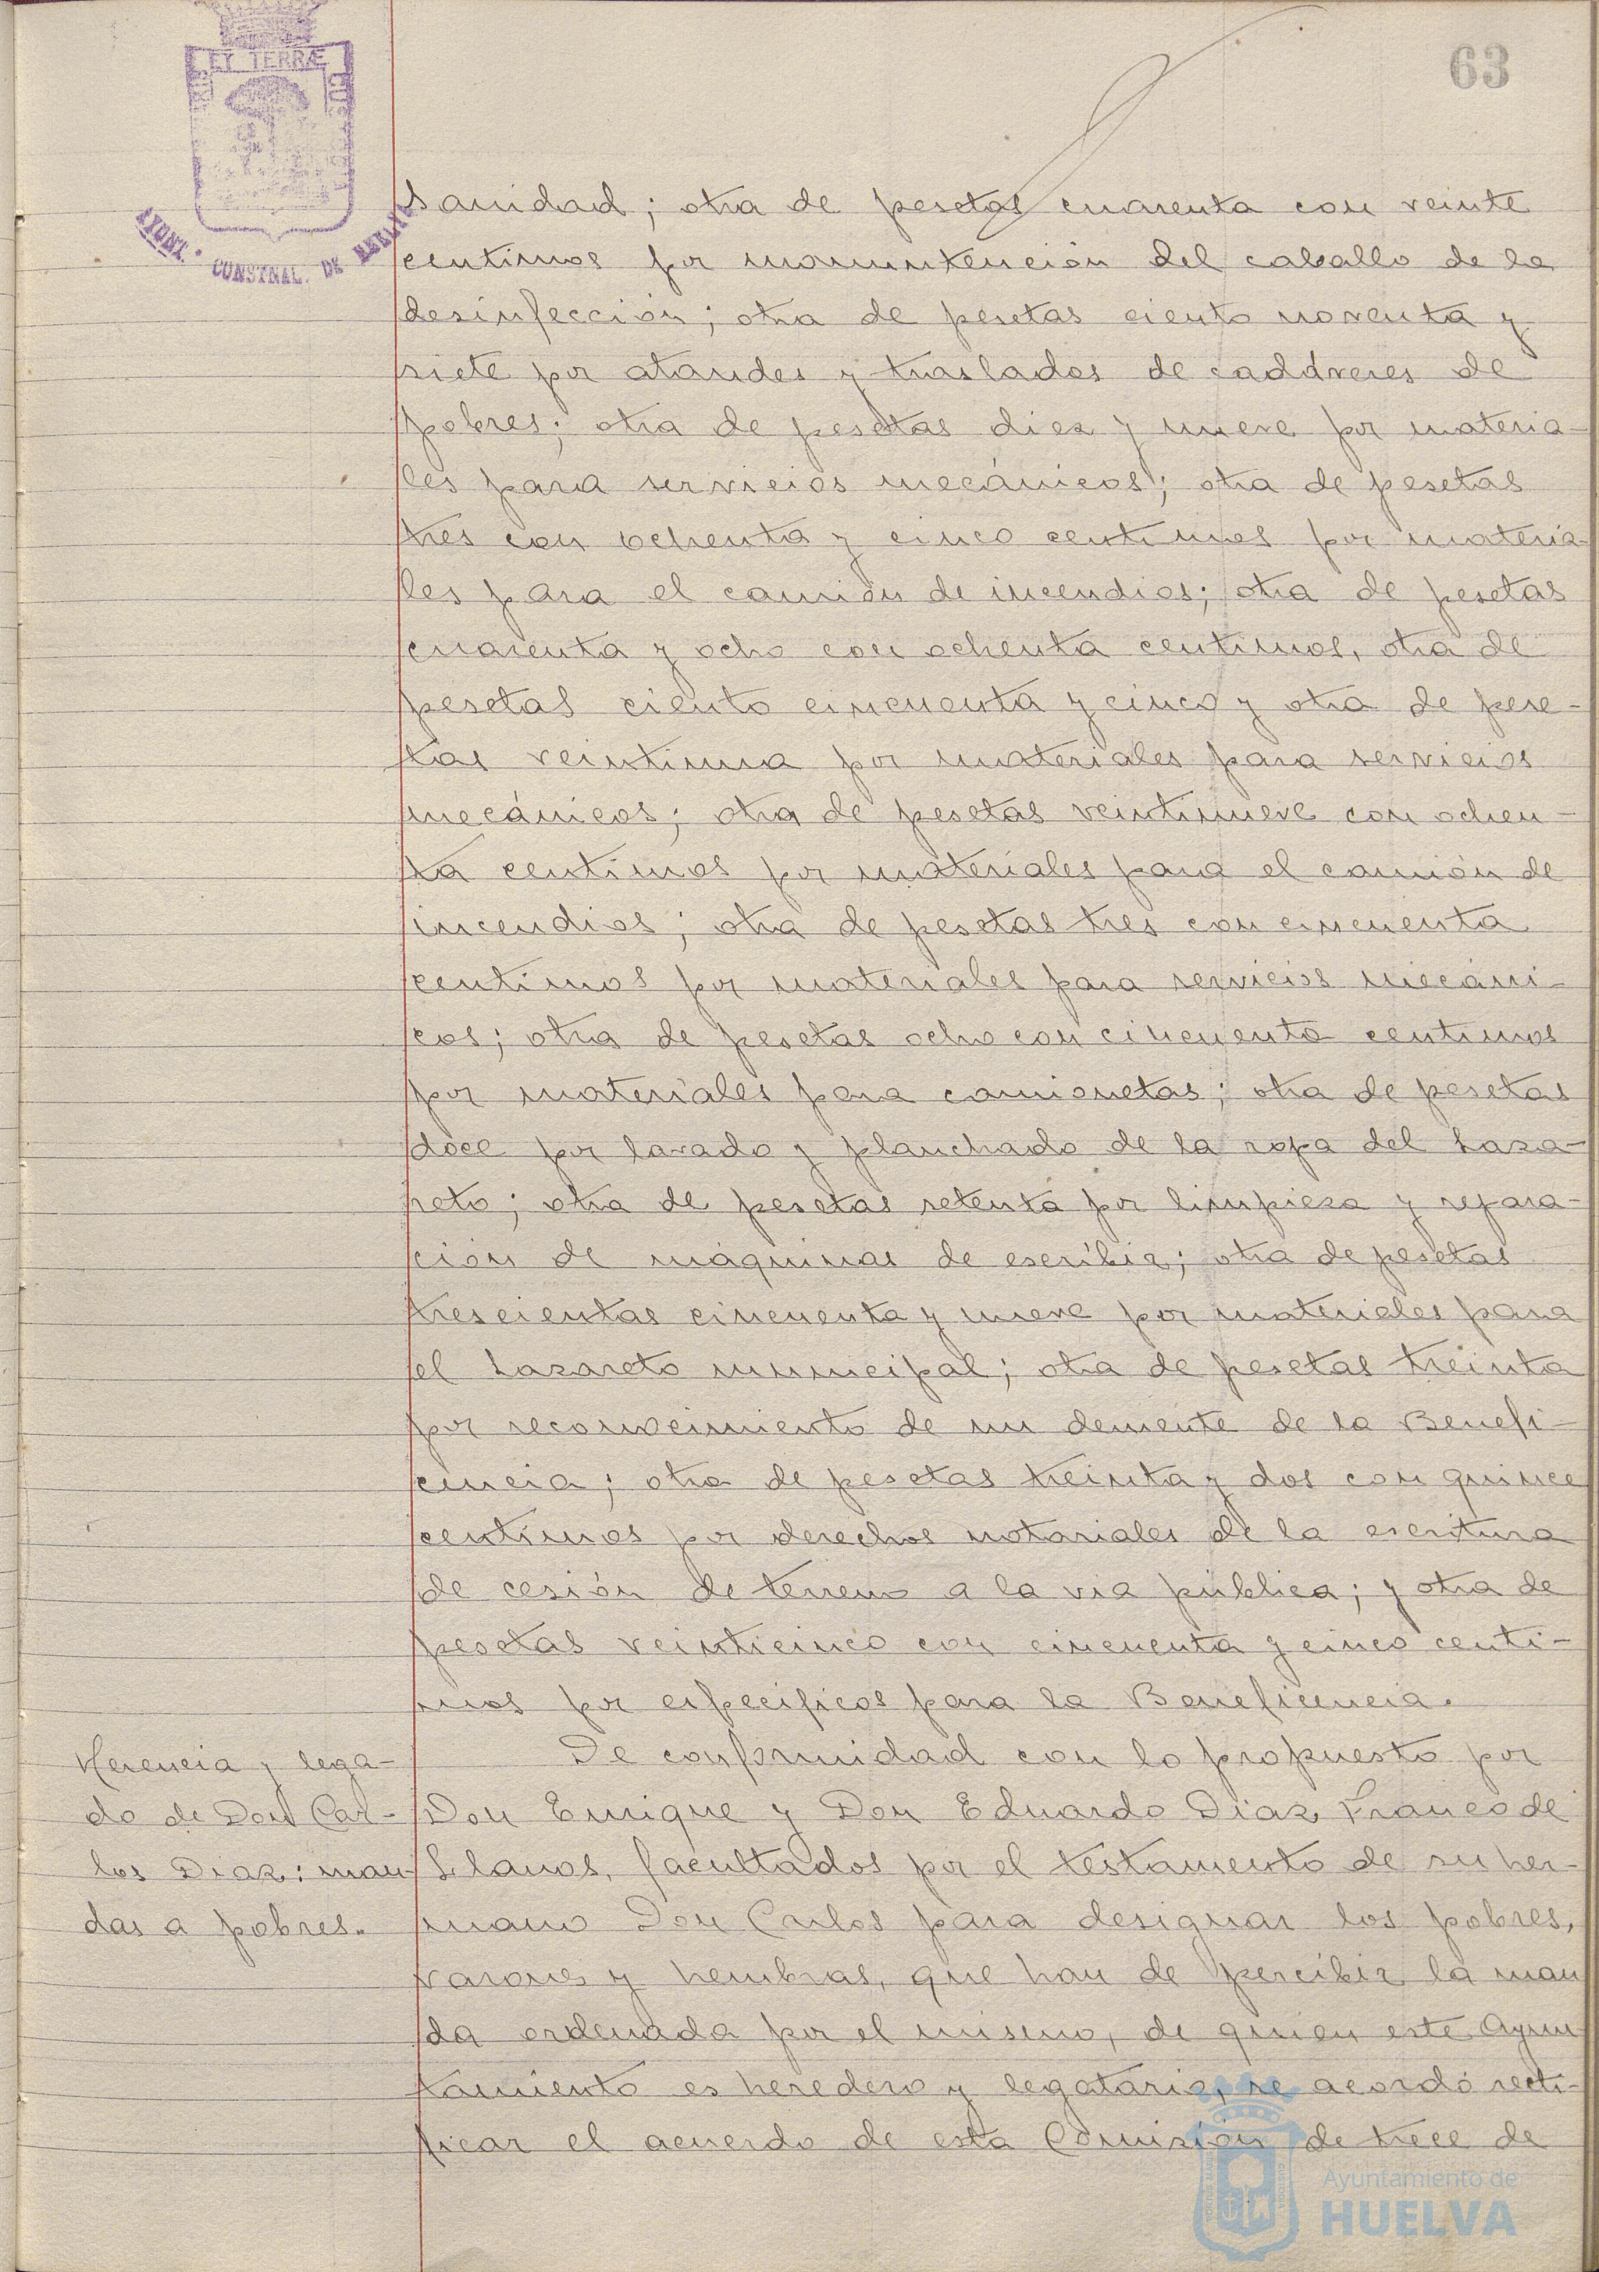 63
ET TERRÆ
AYUNT. CONSTNAL. DE HUELVA
Sanidad; otra de pesetas cuarenta con veinte
centimos por manuntención del caballo de la
desinfección; otra de pesetas ciento noventa y
siete por ataudes y traslados de cadáveres de
pobres; otra de pesetas diez y nueve por materia-
les para servicios mecánicos; otra de pesetas
tres con ochenta y cinco centimos por materia-
les para el camión de incendios; otra de pesetas
cuarenta y ocho con ochenta centimos, otra de
pesetas ciento cincuenta y cinco y otra de pese-
tas veintiuna por materiales para servicios
mecánicos; otra de pesetas veintinueve con ochen-
ta centimos por materiales para el camión de
incendios; otra de pesetas tres con cincuenta
centimos por materiales para servicios mecáni-
cos; otra de pesetas ocho con cincuenta centimos
por materiales para camionetas; otra de pesetas
doce por lavado y planchado de la ropa del Laza-
reto; otra de pesetas setenta por limpieza y repara-
ción de máquinas de escribir; otra de pesetas
trescientas cincuenta y nueve por materiales para
el Lazareto municipal; otra de pesetas treinta
por reconocimiento de un demente de la Benefi-
cencia; otra de pesetas treinta y dos con quince
centimos por derechos notariales de la escritura
de cesión de terreno a la via pública; y otra de
pesetas veinticinco con cincuenta y cinco centi-
mos por especificos para la Beneficencia.
Herencia y lega-
do de Don Car-
los Diaz: man-
das a pobres.
De conformidad con lo propuesto por
Don Enrique y Don Eduardo Diaz Franco de
Llanos, facultados por el testamento de su her-
mano Don Carlos para designar los pobres,
varones y hembras, que han de percibir la man
da ordenada por el mismo, de quien este Ayun
tamiento es heredero y legatario, se acordó recti-
ficar el acuerdo de esta Comisión de trece de
Ayuntamiento de
HUELVA